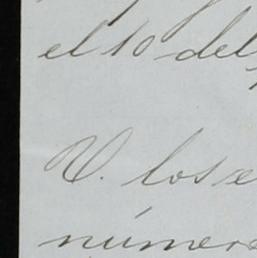 el 10 del
V. los e
número